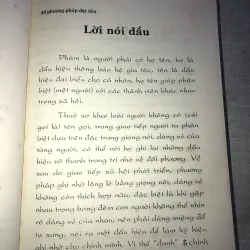 60 phương pháp đặt tên
Lời nói đầu
Phàm là người phải có họ tên, họ là
dấu hiệu thông báo hệ gia tộc, tên là dấu
hiệu đại biểu cho cá nhân, họ tên giúp phân
biệt ("mặt người") các thành viên khác nhau
trong xã hội.
Thuở sơ khai loài người không có (cái
gọi là) tên gọi, trong giao tiếp người ta phân
biệt dựa trên đặc trưng giọng nói, dáng vẻ của
từng người, có thể nói họ ghi lại những dấu
hiệu vô thanh trong trí nhớ về đối phương. Về
sau do giao tiếp xã hội phát triển, phương
pháp ghi nhớ lặng lẽ bằng giọng nói, dáng vẻ
không còn thích hợp nữa, đặc biệt là khi gặp
nhau trong bóng đêm con người không thể nhìn
rõ dáng vẻ của nhau, nên phải dùng miệng để
tự xưng, nói ra một dấu hiệu để làm ký hiệu
ghi nhớ cho chính mình. Vì thế "danh" chính